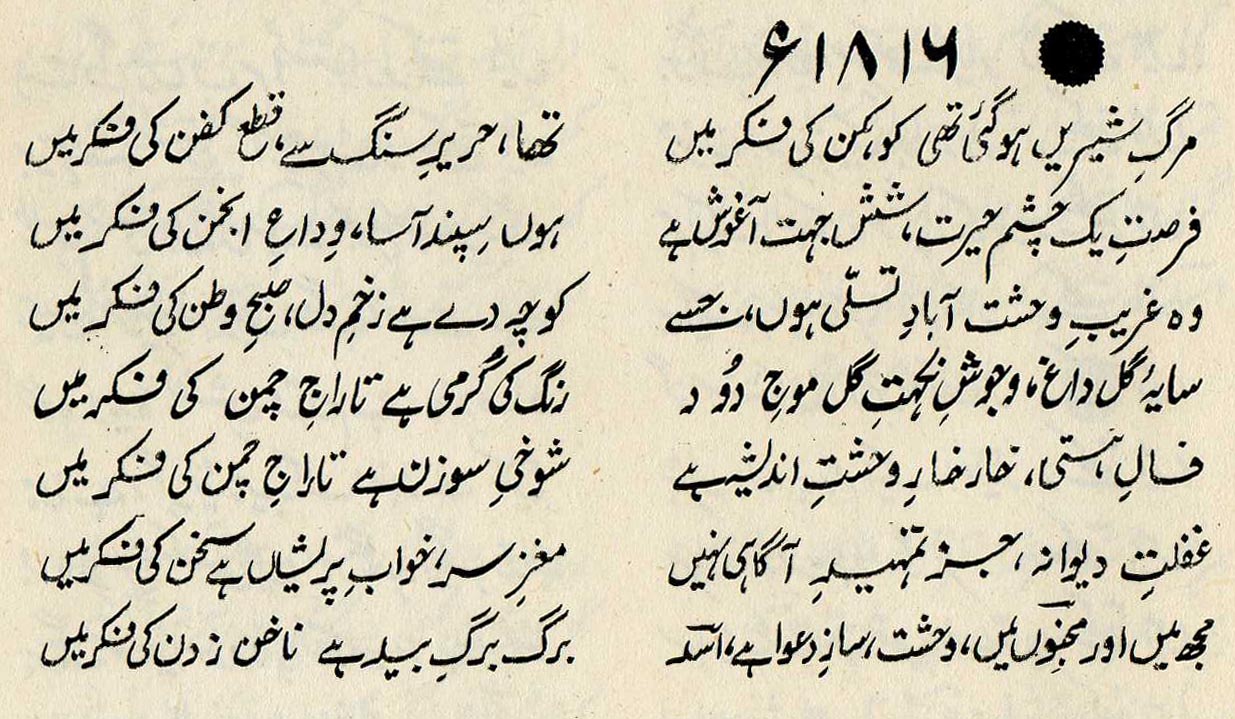 ۱۸۱۶ء
مرگِ شیریں ہوگئی تھی کوہکن کی فکر میں تھا، حریرِ سنگ سے، قطع کفن کی فکر میں
فرصتِ یک چشم حیرت، شش جہت آغوش ہے ہوں سِپند آسا، وِداعِ انجمن کی فکر میں
وہ غریبِ وحشت آبادِ تسلّی ہوں، جسے کوچہ دے ہے زخمِ دل، صبحِ وطن کی فکر میں
سایۂ گل داغ، و جوشِ نکہتِ گل موجِ دُود رنگ کی گرمی ہے تاراجِ چمن کی فکر میں
فالِ ہستی، خار خارِ وحشتِ اندیشہ ہے شوخیِ سوزن ہے تاراجِ چمن کی فکر میں
غفلتِ دیوانہ، جز تمہیدِ آگاہی نہیں مغزِ سر، خوابِ پریشاں ہے سخن کی فکر میں
مجھ میں اور مجنوں میں، وحشت، سازِ دعوا ہے، اسدؔ برگ برگِ بید ہے ناخن زدن کی فکر میں